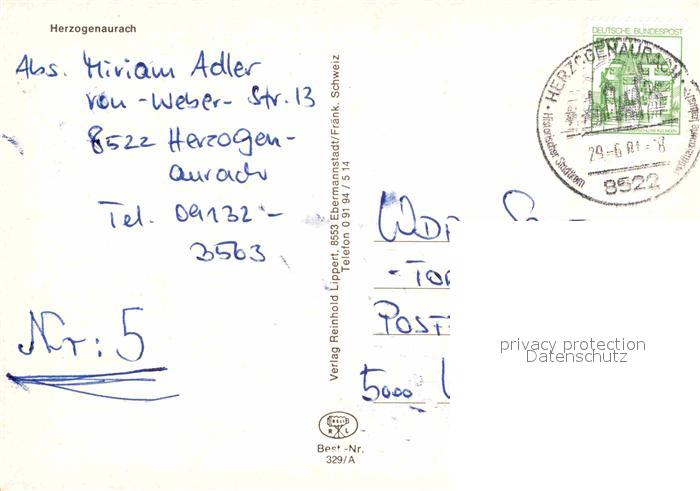 Herzogenaurach
Abs. Miriam Adler
von-Weber-Str. 13
8522 Herzogen-
aurach
Tel. 09132 -
3563
Nr: 5
Verlag Reinhold Lippert, 8553 Ebermannstadt/Fränk. Schweiz
Telefon 0 91 94 / 5 14
RELI
R L
Best.-Nr.
329/A
DEUTSCHE BUNDESPOST
HERZOGENAURACH
Historischer Stadtkern
29.-6.81 - 8
8522
WDR
POST
5000
privacy protection
Datenschutz